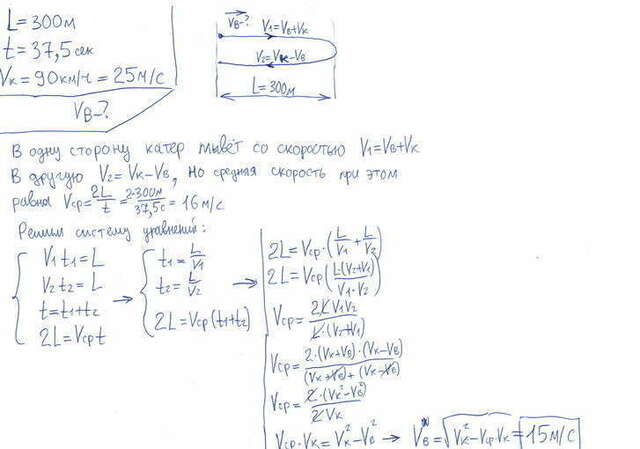 L = 300м
t = 37,5 сек
Vк = 90 км/ч = 25 м/с
Vв - ?
Vв - ?
V₁ = Vв + Vк
V₂ = Vк - Vв
L = 300м
В одну сторону катер плывёт со скоростью V₁ = Vв + Vк
В другую V₂ = Vк - Vв, но средняя скорость при этом
равна Vср = 2L/t = 2·300м/37,5с = 16 м/с
Решим систему уравнений:
V₁t₁ = L
V₂t₂ = L
t = t₁ + t₂
2L = Vср t
t₁ = L/V₁
t₂ = L/V₂
2L = Vср (t₁ + t₂)
2L = Vср · (L/V₁ + L/V₂)
2L = Vср (L·(V₂ + V₁)/V₁·V₂)
Vср = 2L V₁V₂/L·(V₂ + V₁)
Vср = 2·(Vк + Vв)·(Vк - Vв)/(Vк + Vв) + (Vк - Vв)
Vср = 2·(Vк² - Vв²)/2Vк
Vср · Vк = Vк² - Vв² → Vв = √(Vк² - Vср·Vк) = 15 м/с